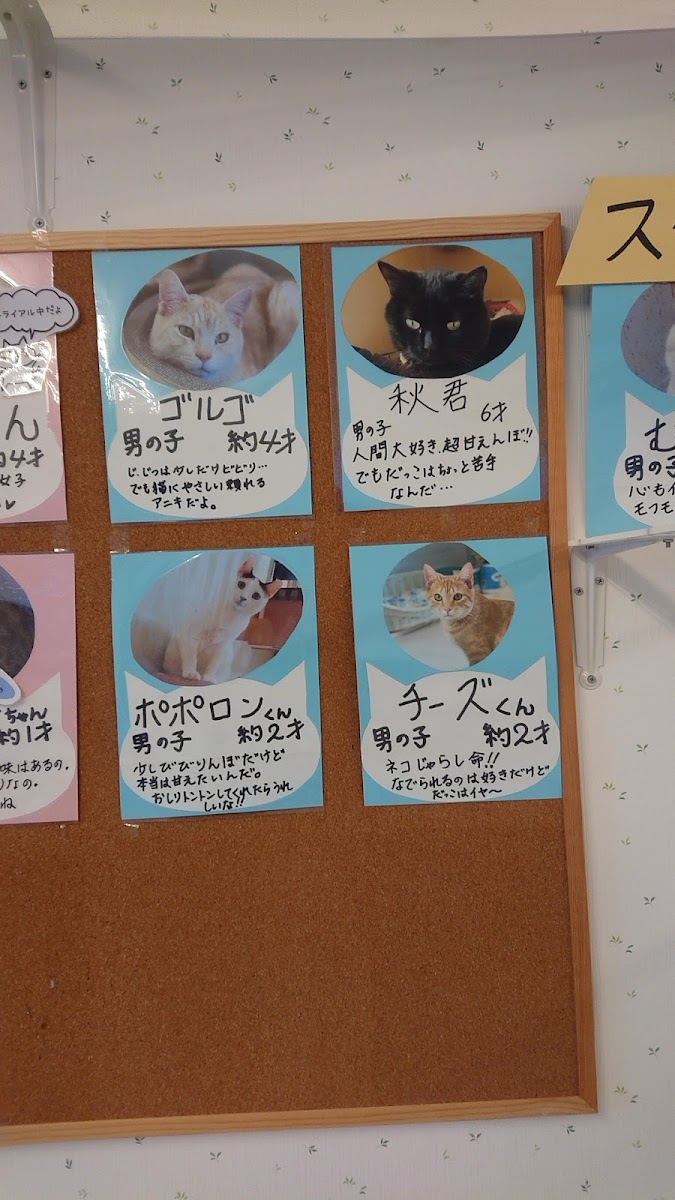 ス
ライアル中だよ
ん
約4才
女子
ゴルゴ
男の子 約4才
じ、じつは少しだけビビリ…
でも猫にやさしい頼れる
アニキだよ。
秋君
男の子 6才
人間大好き、超甘えんぼ!!
でもだっこはちょっと苦手
なんだ…
む
男の子
心もイ
モフモ
ちゃん
約1才
味はあるの。
りなの。
ね
ポポロンくん
男の子 約2才
少しびびりんぼだけど
本当は甘えたいんだ。
おしりトントンしてくれたらうれ
しいな!!
チーズくん
男の子 約2才
ネコじゃらし命!!
なでられるのは好きだけど
だっこはイヤ〜